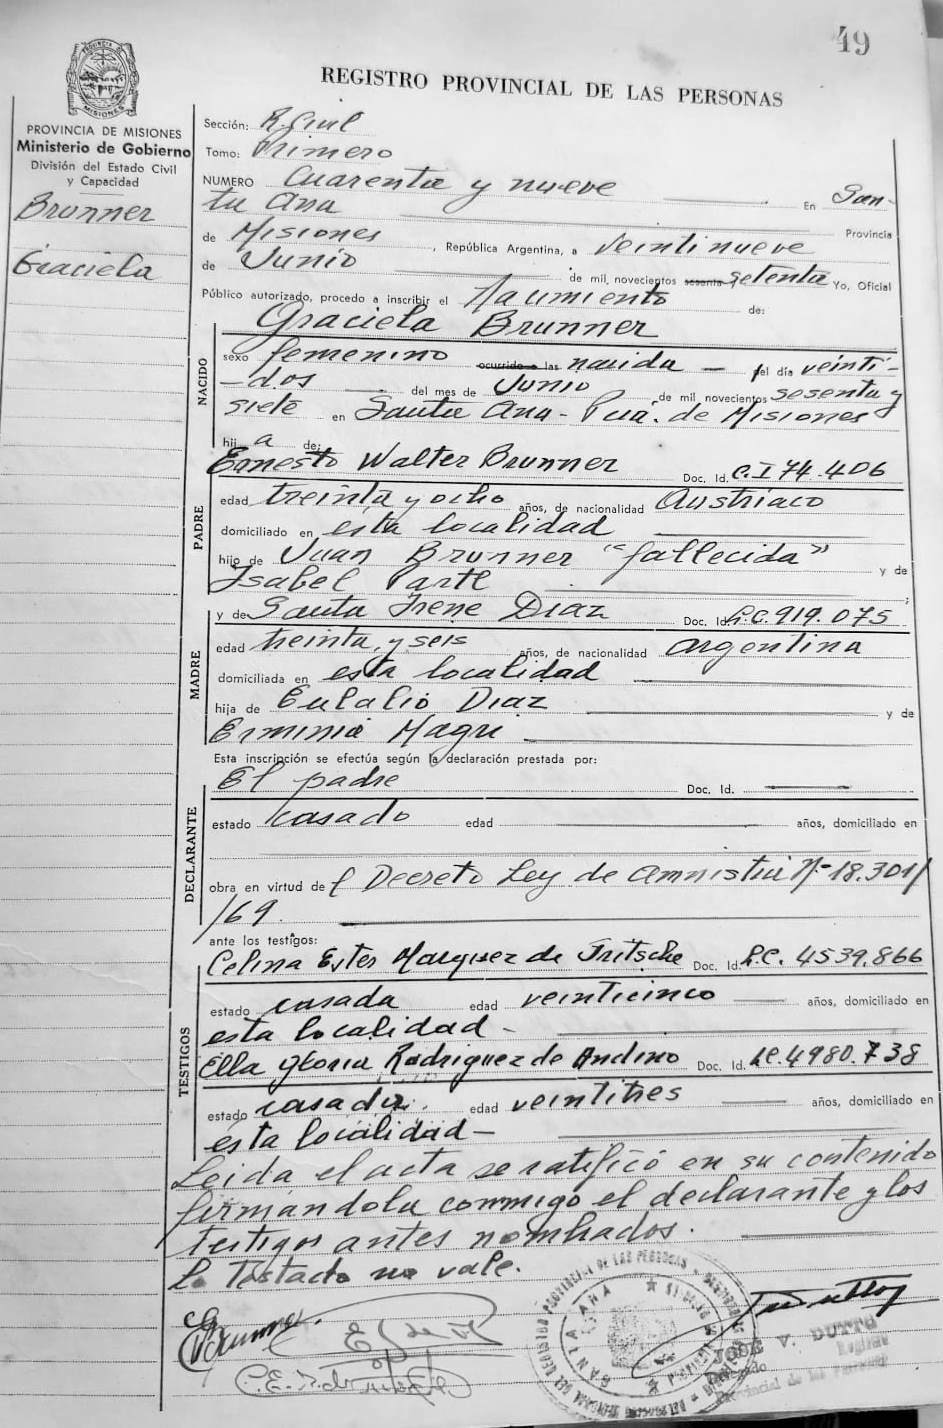 49
REGISTRO PROVINCIAL DE LAS PERSONAS
PROVINCIA DE MISIONES
Ministerio de Gobierno
División del Estado Civil
y Capacidad
Brunner
Graciela
Sección: R. Civil
Tomo: Primero
NUMERO Cuarenta y nueve En San-
ta Ana Provincia
de Misiones, República Argentina, a veintinueve
de Junio de mil novecientos sesenta setenta Yo, Oficial
Público autorizado, procedo a inscribir el Nacimiento de:
Graciela Brunner
NACIDO
sexo femenino ocurrido a las nacida — el día veinti-
-dos del mes de Junio de mil novecientos sesenta y
siete en Santa Ana - Pcia. de Misiones
hij a de:
Ernesto Walter Brunner Doc. Id. C.I 74.406
PADRE
edad treinta y ocho años, de nacionalidad Austriaco
domiciliado en esta localidad
hijo de Juan Brunner "fallecida" y de
Isabel Partl ;
y de Santa Irene Diaz Doc. Id. L.C. 919.075
MADRE
edad treinta y seis años, de nacionalidad argentina
domiciliada en esta localidad
hija de Eulalio Diaz y de
Erminia Magri
Esta inscripción se efectúa según la declaración prestada por:
El padre Doc. Id.
DECLARANTE
estado casado edad años, domiciliado en
obra en virtud del Decreto Ley de amnistia Nº 18.301/
/69.
ante los testigos:
Celina Ester Marquez de Fritsche Doc. Id. L.C. 4539.866
TESTIGOS
estado casada edad veinticinco años, domiciliado en
esta localidad -
Ella Gloria Rodriguez de Andino Doc. Id. LC. 4980.738
estado casada. edad veintitres años, domiciliado en
esta localidad —
Leida el acta se ratificó en su contenido
firmandola conmigo el declarante y los
testigos antes nombrados.
Lo testado no vale.
EBrunner.
JOSE V. DUTTO
Provincial de las Personas
SANTA ANA